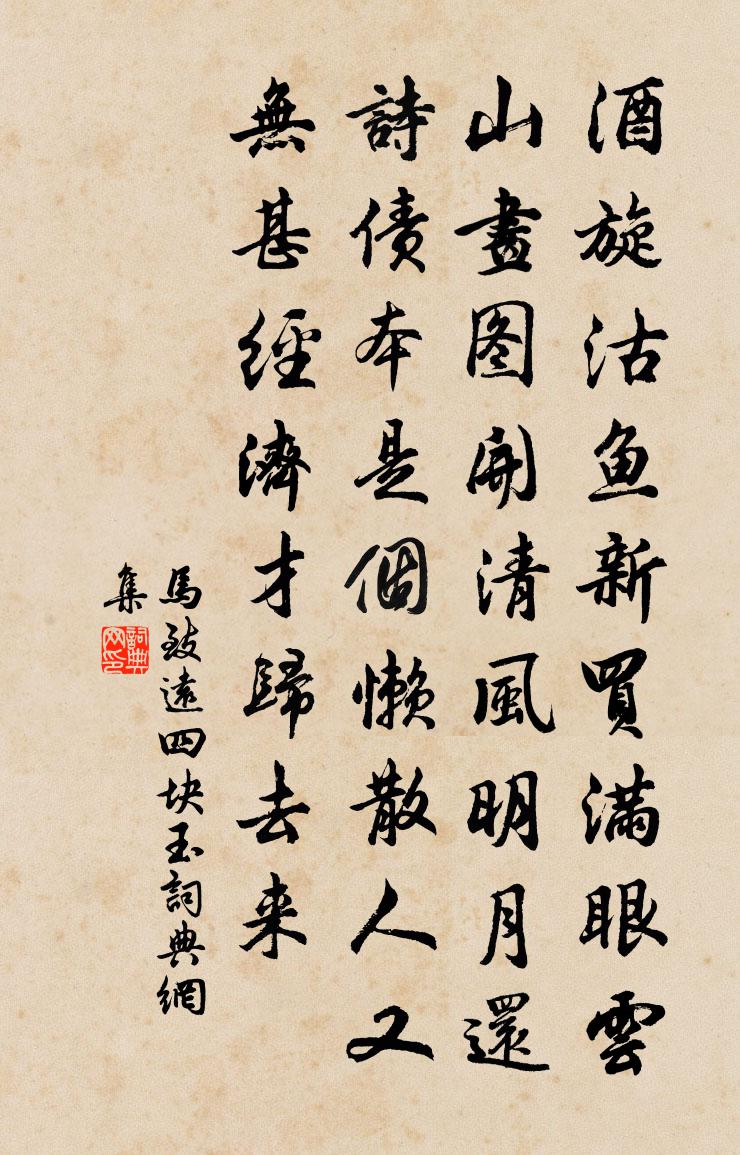 酒旋沽鱼新買满眼雲
山畫图開清風明月還
詩债本是個懒散人又
無甚經濟才歸去来
馬致遠四块玉詞典網
集
詞典
网印